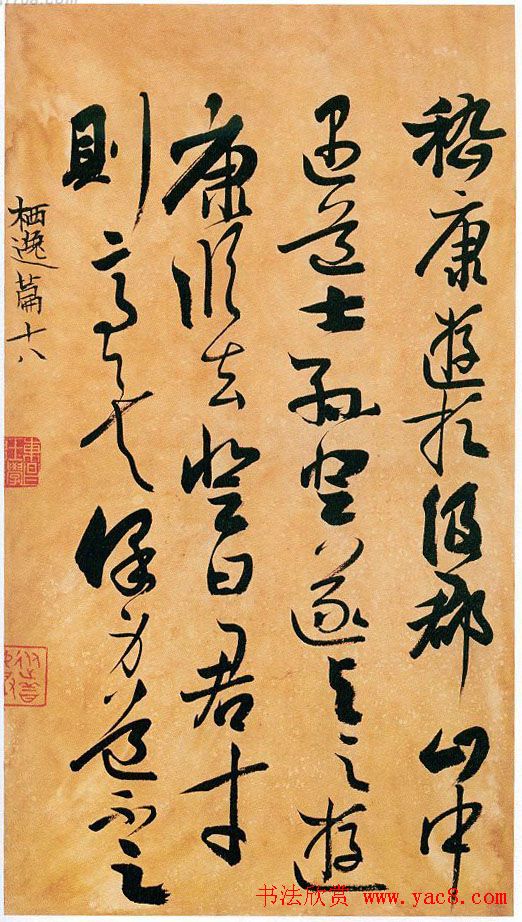 嵇康遊於汲郡山中
遇道士孫登遂與之遊
康臨去登曰君才
則高矣保身道不足
栖逸篇十八
书法欣赏 www.yac8.com